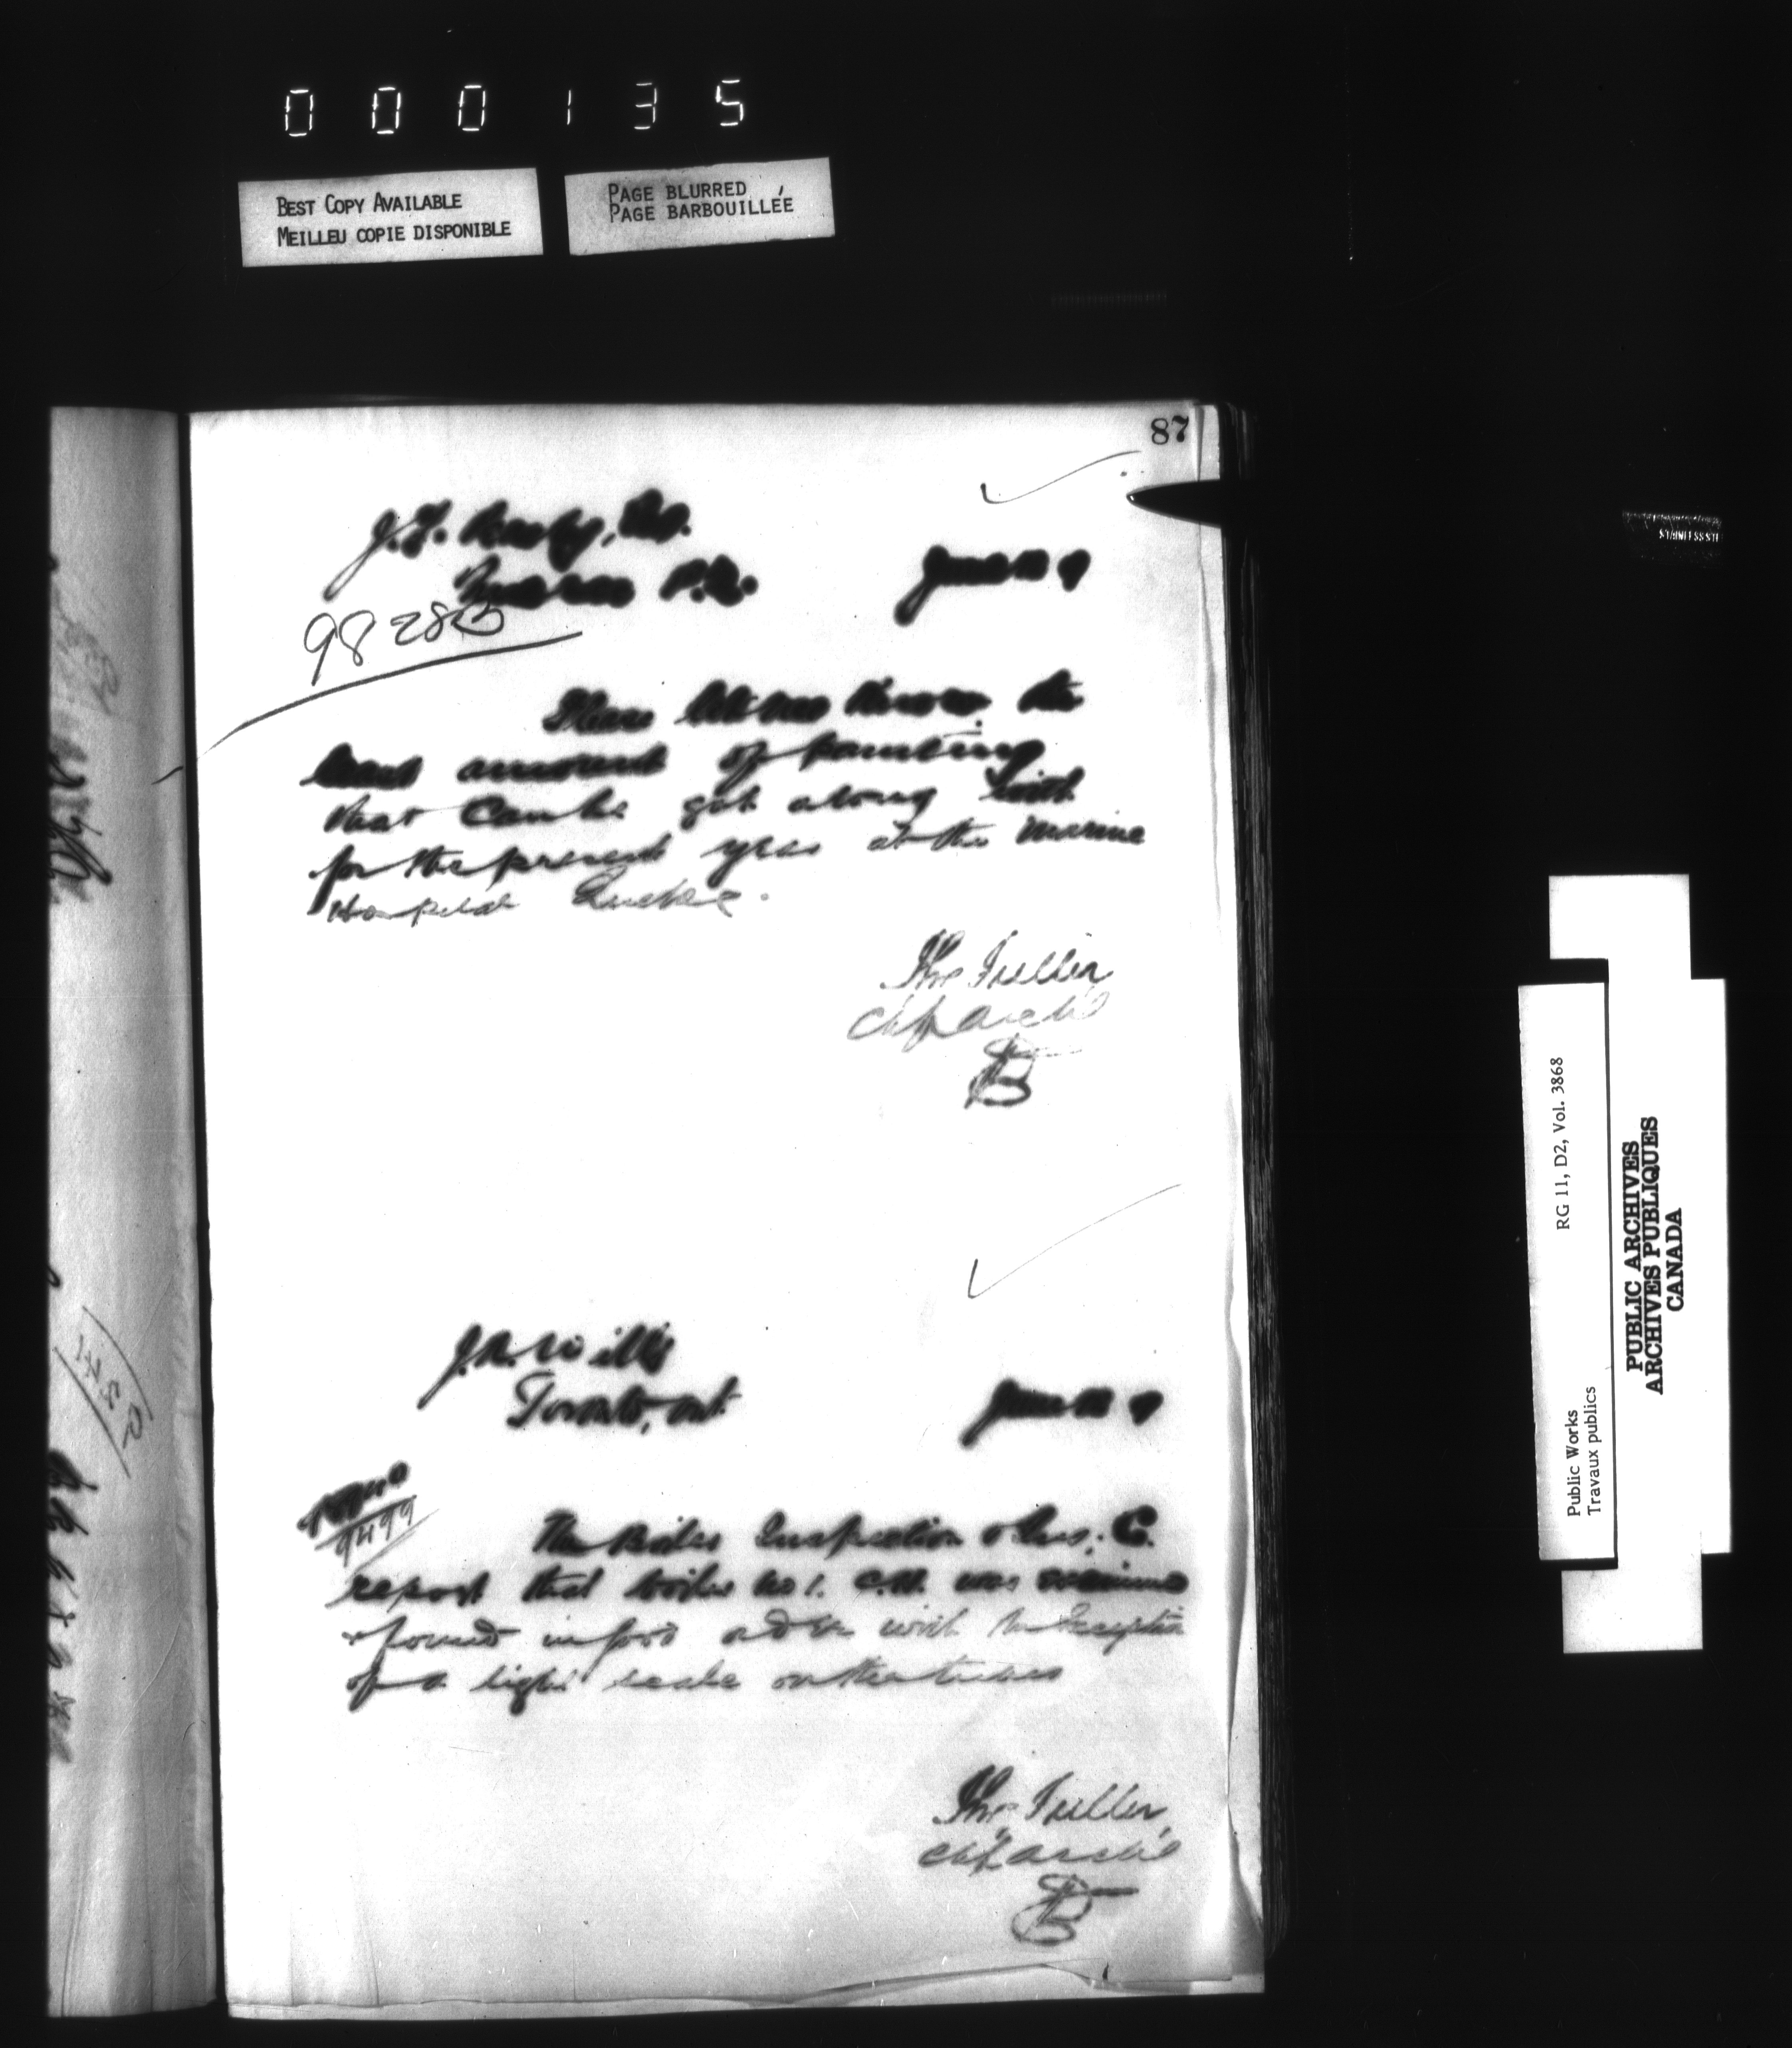 000135
BEST COPY AVAILABLE
MEILLEU COPIE DISPONIBLE
PAGE BLURRED
PAGE BARBOUILLÉE
87
J.
P.Q.
June
98283
Please let me know the
least amount of painting
that can be got along with
for the present year at the Marine
Hospital Quebec.
Thos Fuller,
Chf Archt
J.R. Wills
Toronto, Ont.
June
9499
The Boiler Inspection & Ins. C.
report that boiler No 1. C.H. was
& found in good order with the exception
of a light scale on the tubes
Thos Fuller,
Chf Archt
STAINLESS ST
RG 11, D2, Vol. 3868
Public Works
Travaux publics
PUBLIC ARCHIVES
ARCHIVES PUBLIQUES
CANADA